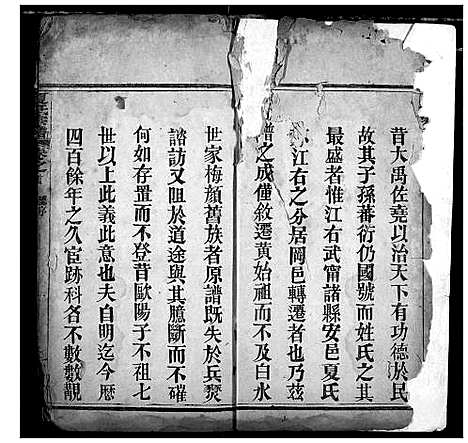 昔大禹佐堯以治天下有功德於民
故其子孫蕃衍仍國號而姓氏之其
最盛者惟江右武甯諸縣安邑夏氏
江右之分居岡邑轉遷者也乃茲
譜之成僅敘遷黃始祖而不及白水
世家梅顏舊族者原譜旣失於兵燹
諮訪又阻於道途與其臆斷而不確
何如存置而不登昔歐陽子不祖七
世以上此義此意也夫自明迄今歷
四百餘年之久宦跡科名不數數覯